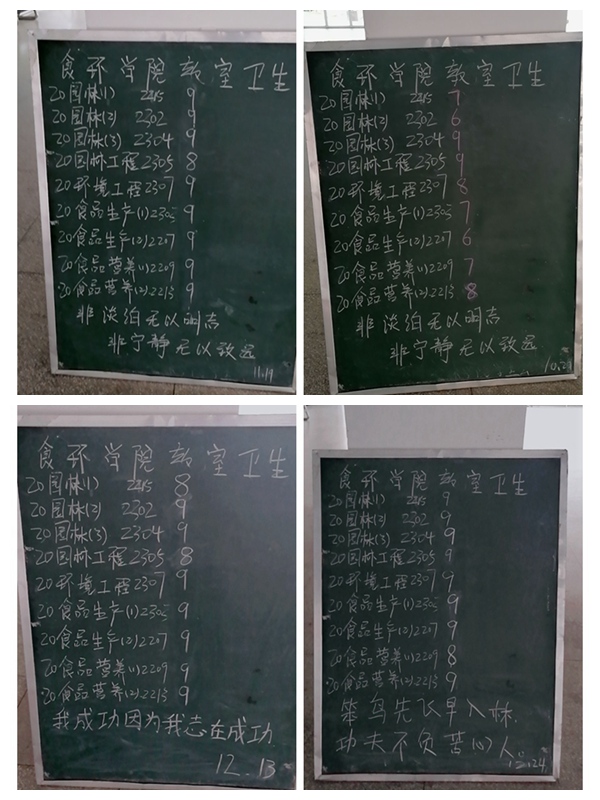 食环学院教室卫生
20园林(1) 2215 9
20园林(2) 2302 9
20园林(3) 2304 9
20园林工程2305 8
20环境工程2307 9
20食品生产(1)2303 9
20食品生产(2)2207 9
20食品营养(1)2209 9
20食品营养(2)2213 9
非淡泊无以明志
非宁静无以致远
11.19
食环学院教室卫生
20园林(1) 2215 7
20园林(2) 2302 6
20园林(3) 2304 9
20园林工程2305 9
20环境工程2307 8
20食品生产(1)2303 7
20食品生产(2)2207 6
20食品营养(1)2209 7
20食品营养(2)2213 8
非淡泊无以明志
非宁静无以致远
食环学院教室卫生
20园林(1) 2215 8
20园林(2) 2302 9
20园林(3) 2304 9
20园林工程2305 8
20环境工程2307 9
20食品生产(1)2303 9
20食品生产(2)2207 9
20食品营养(1)2209 9
20食品营养(2)2213 9
我成功因为我志在成功
12.13
食环学院教室卫生
20园林(1) 2215 9
20园林(2) 2302 9
20园林(3) 2304 9
20园林工程2305 9
20环境工程2307 9
20食品生产(1)2303 9
20食品生产(2)2207 9
20食品营养(1)2209 8
20食品营养(2)2213 9
笨鸟先飞早入林.
功夫不负苦心人.
12.24